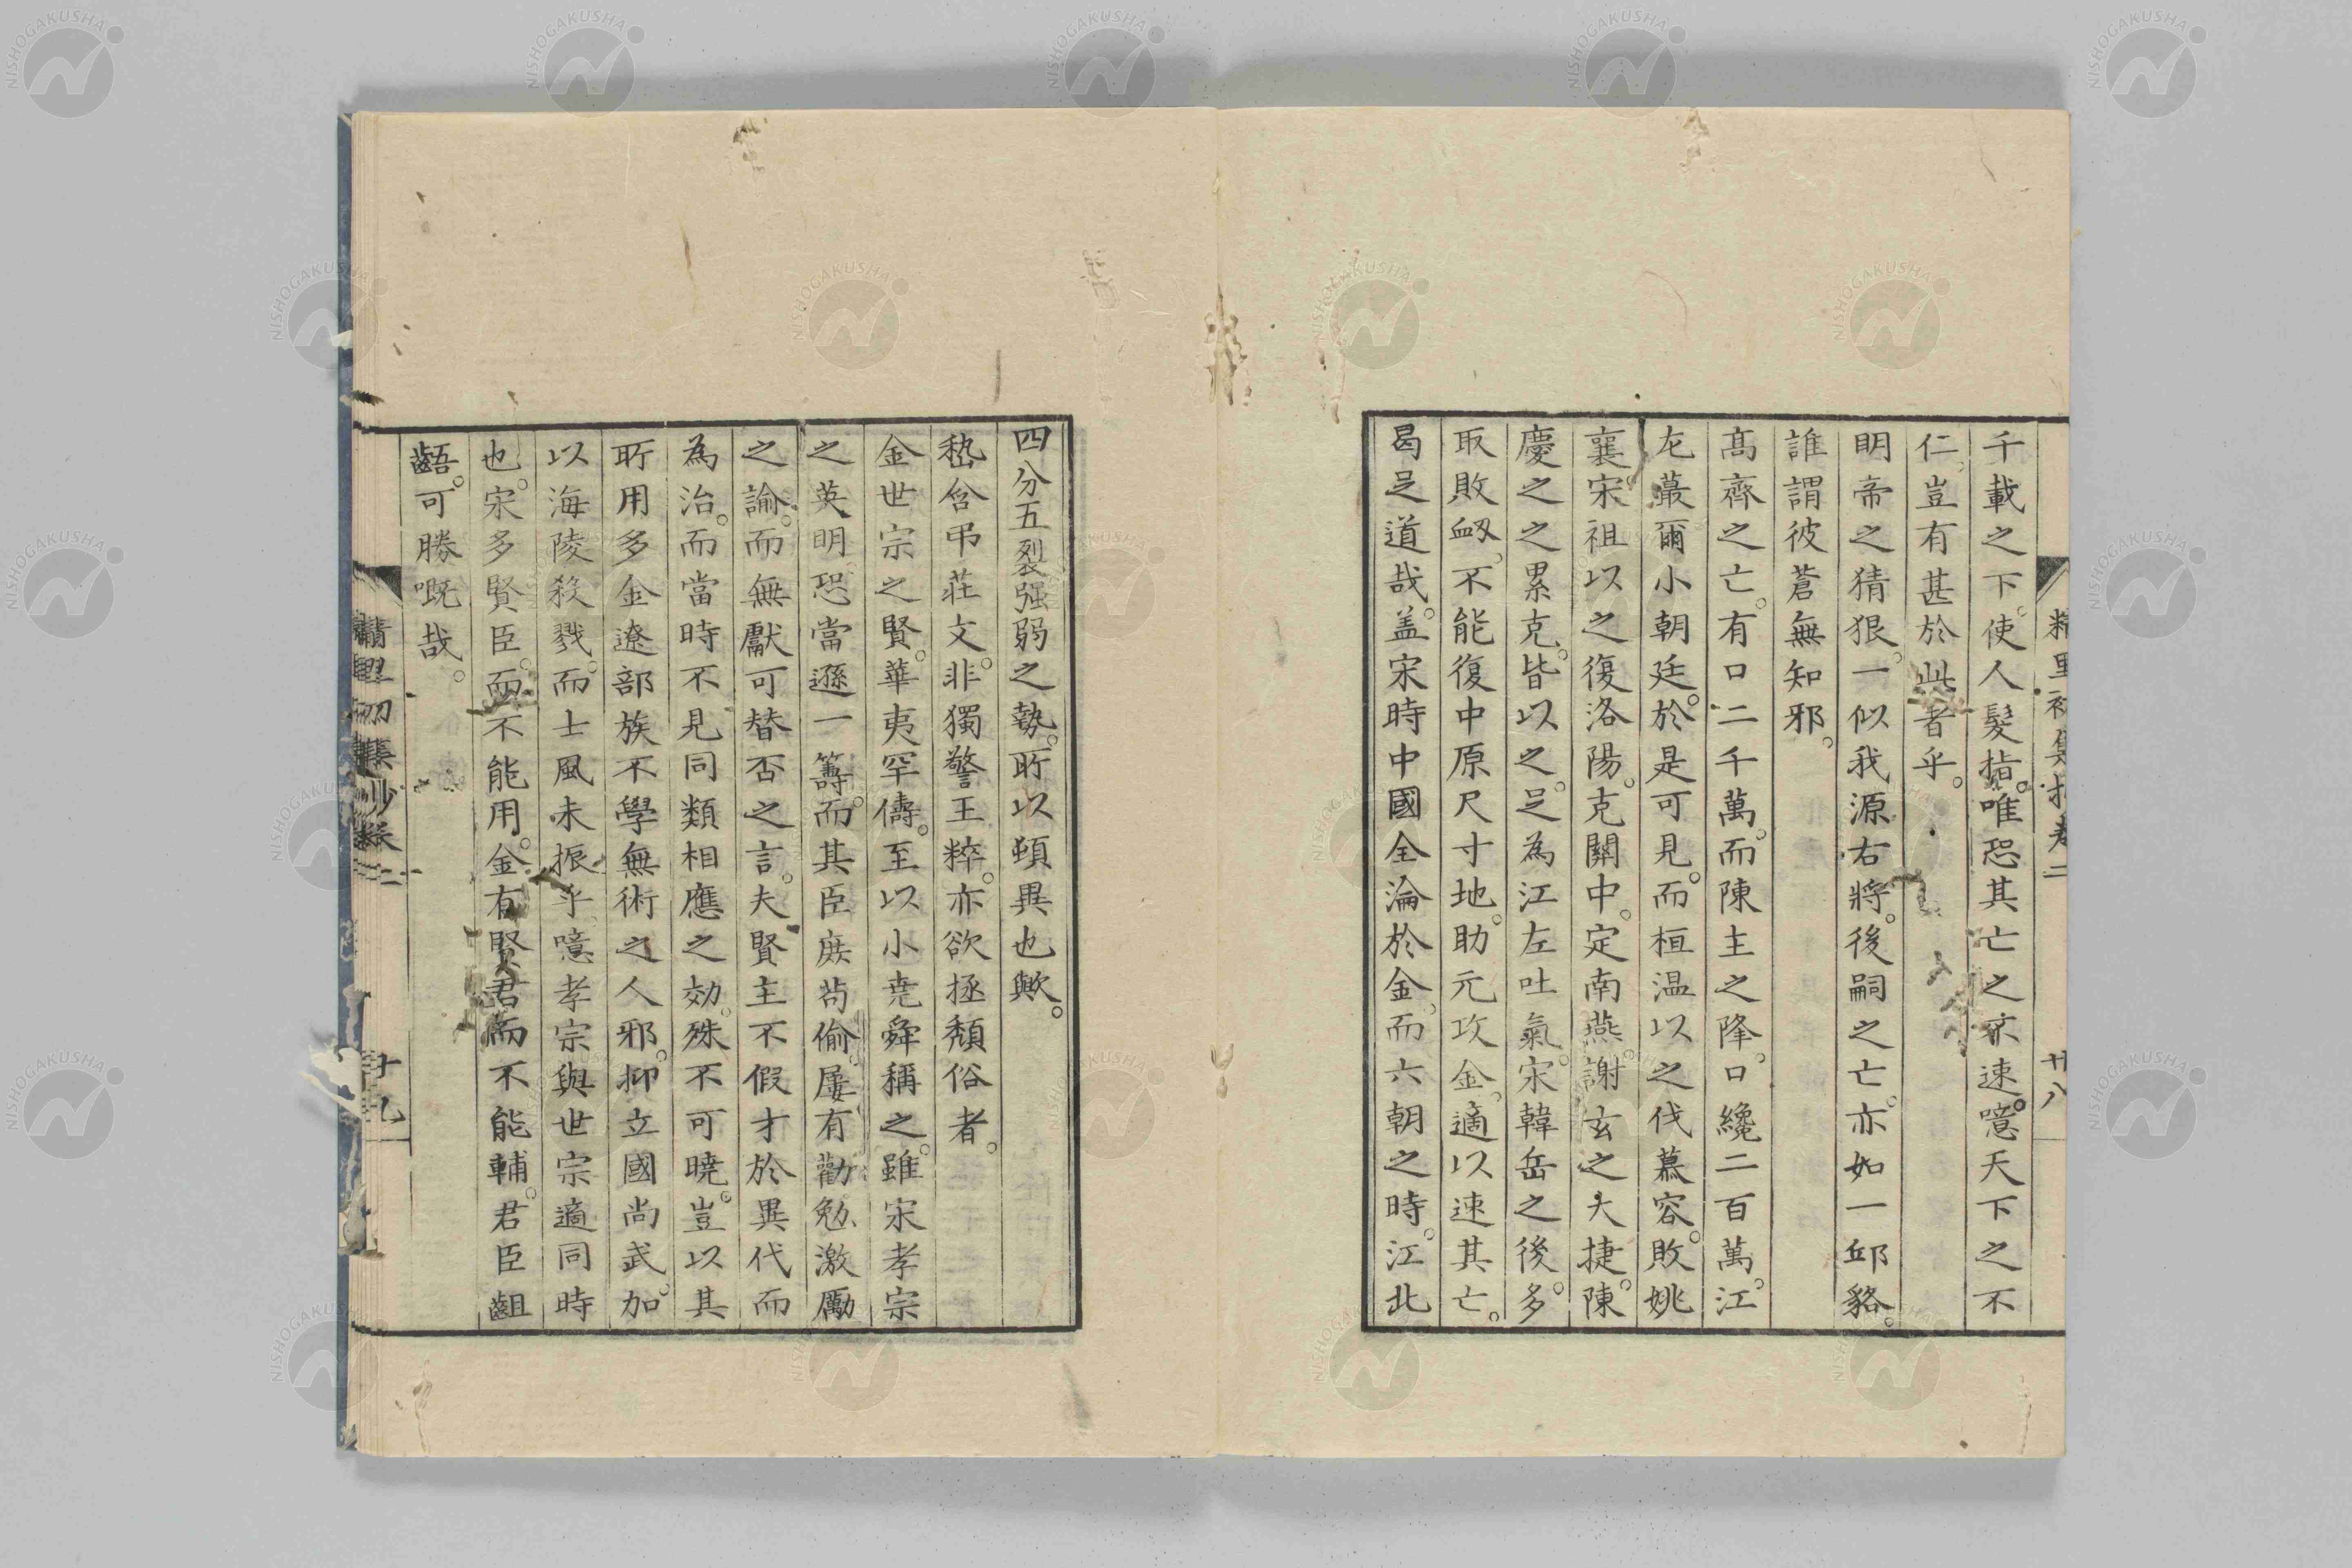 精里初集抄卷二
廿八
千載之下。使人髮指。唯恐其亡之不速。噫天下之不
仁。豈有甚於此者乎。
明帝之猜狠。一似我源右將。後嗣之亡。亦如一邱貉。
誰謂彼蒼無知邪。
髙齊之亡。有口二千萬。而陳主之降。口纔二百萬。江
左蕞爾小朝廷。於是可見。而桓温以之伐慕容。敗姚
襄。宋祖以之復洛陽。克關中。定南燕。謝玄之大捷。陳
慶之之累克。皆以之。足為江左吐氣。宋韓岳之後。多
取敗衂。不能復中原尺寸地。助元攻金。適以速其亡。
曷足道哉。盖宋時中國全淪於金。而六朝之時。江北
四分五裂强弱之勢。所以頓異也歟。
嵇含弔莊文。非獨警王粹。亦欲拯頽俗者。
金世宗之賢。華夷罕儔。至以小堯舜稱之。雖宋孝宗
之英明。恐當遜一籌。而其臣庶苟偷。屢有勸勉激厲
之諭。而無獻可替否之言。夫賢主不假才於異代而
為治。而當時不見同類相應之効。殊不可曉。豈以其
所用多金遼部族不學無術之人邪。抑立國尚武。加
以海陵殺戮。而士風未振乎。噫孝宗與世宗適同時
也。宋多賢臣。而不能用。金有賢君而不能輔。君臣齟
齬。可勝嘅哉。
精里初集抄卷二
廿九
NISHOGAKUSHA